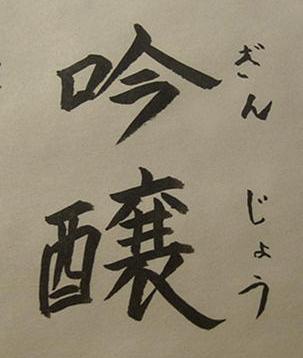 吟醸
ぎんじょう